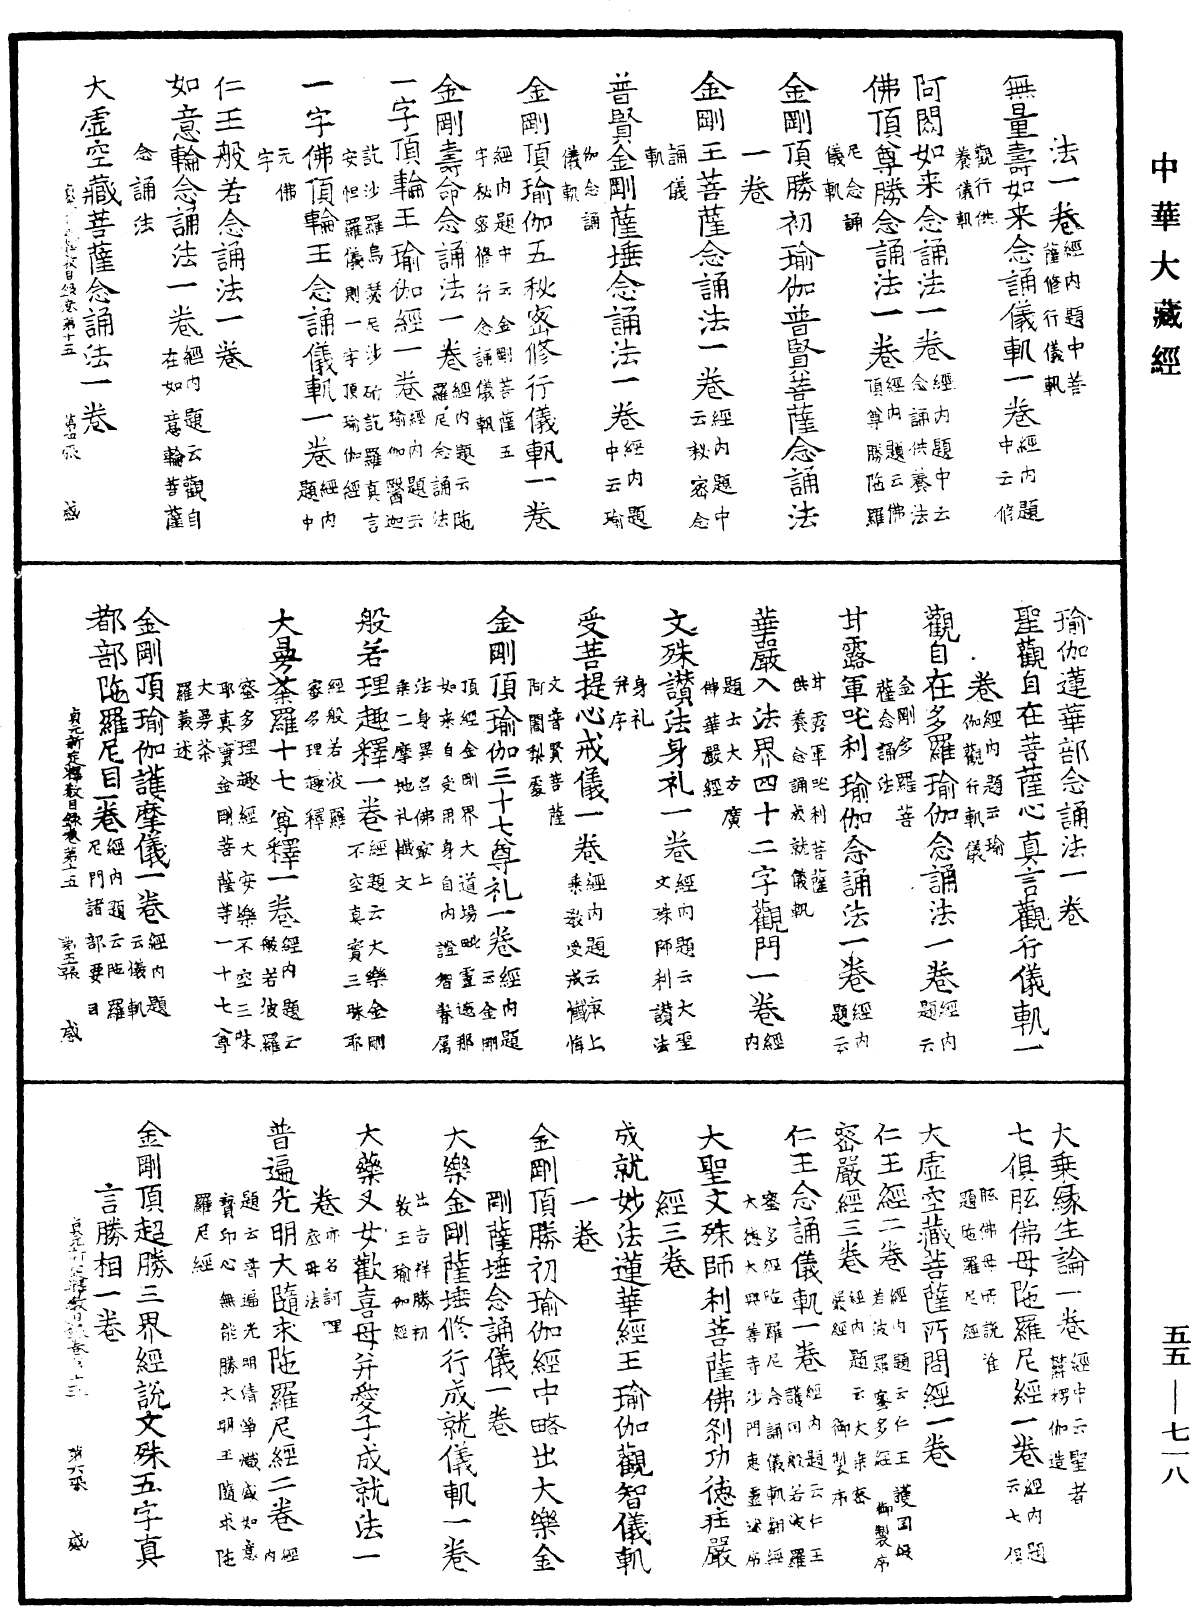 中華大藏經
法一卷經內題中菩薩修行儀軌
無量壽如来念誦儀軌一卷經內題中云修
觀行供養儀軌
阿閦如来念誦法一卷經內題中云念誦供養法
佛頂尊勝念誦法一卷經內題云佛頂尊勝陁羅
尼念誦儀軌
金剛頂勝初瑜伽普賢菩薩念誦法
一卷
金剛王菩薩念誦法一卷經內題中云秘密念
誦儀軌
普賢金剛薩埵念誦法一卷經內題中云瑜
伽念誦儀軌
金剛頂瑜伽五秋密修行儀軌一卷
經內題中云金剛菩薩五字秘密修行念誦儀軌
金剛壽命念誦法一卷經內題云陁羅尼念誦法
一字頂輪王瑜伽經一卷經內題云瑜伽醫迦
訖沙羅烏瑟尼沙斫訖羅真言安怛羅儀則一字頂瑜伽經
一字佛頂輪王念誦儀軌一卷經內題中
元佛字
仁王般若念誦法一卷
如意輪念誦法一卷經內題云觀自在如意輪菩薩
念誦法
大虛空藏菩薩念誦法一卷
瑜伽蓮華部念誦法一卷
聖觀自在菩薩心真言觀行儀軌一
卷經內題云瑜伽觀行軌儀
觀自在多羅瑜伽念誦法一卷經內題云
金剛多羅菩薩念誦法
甘露軍吒利瑜伽念誦法一卷經內題云
甘露軍吒利菩薩供養念誦成就儀軌
華嚴入法界四十二字觀門一卷經內
題云大方廣佛華嚴經
文殊讃法身礼一卷經內題云大聖文殊師利讃法
身礼并序
受菩提心戒儀一卷經內題云最上乘教受戒懺悔
文普賢菩薩阿闍梨處
金剛頂瑜伽三十七尊礼一卷經內題云金剛
頂經金剛界大道場毗盧遮那如来自受用身自內證智眷属
法身異名佛最上乘二摩地礼懺文
般若理趣釋一卷經題云大樂金剛不空真實三昧耶
經般若波羅蜜多理趣釋
大曼荼羅十七尊釋一卷經內題云般若波羅
蜜多理趣經大安樂不空三昧耶真實金剛菩薩等一十七尊
大曼荼羅義述
金剛頂瑜伽護摩儀一卷經內題云儀軌
都部陁羅尼目一卷經內題云陁羅尼門諸部要目
貞元新定釋教目錄卷第十五　第五張　感
大乘緣生論一卷經中云聖者欝楞伽造
七俱胝佛母陁羅尼經一卷經內題云七俱
胝佛母所說准題陁羅尼經
大虛空藏菩薩所問經一卷
仁王經二卷經內題云仁王護国般若波羅蜜多經御製序
密嚴經三卷經內題云大乘密嚴經御製序
仁王念誦儀軌一卷經內題云仁王護国般若波羅
蜜多經陁羅尼念誦儀軌翻經大德大興善寺沙門惠靈述序
大聖文殊師利菩薩佛剎功德莊嚴
經三卷
成就妙法蓮華經王瑜伽觀智儀軌
一卷
金剛頂勝初瑜伽經中略出大樂金
剛薩埵念誦儀一卷
大樂金剛薩埵修行成就儀軌一卷
出吉祥勝初教王瑜伽經
大藥叉女歡喜母并愛子成就法一
卷亦名訶哩底母法
普遍光明大隨求陁羅尼經二卷經內
題云普遍光明清淨熾盛如意寶印心無能勝大明王隨求陁
羅尼經
金剛頂超勝三界經說文殊五字真
言勝相一卷
第六張　感
五五—七一八